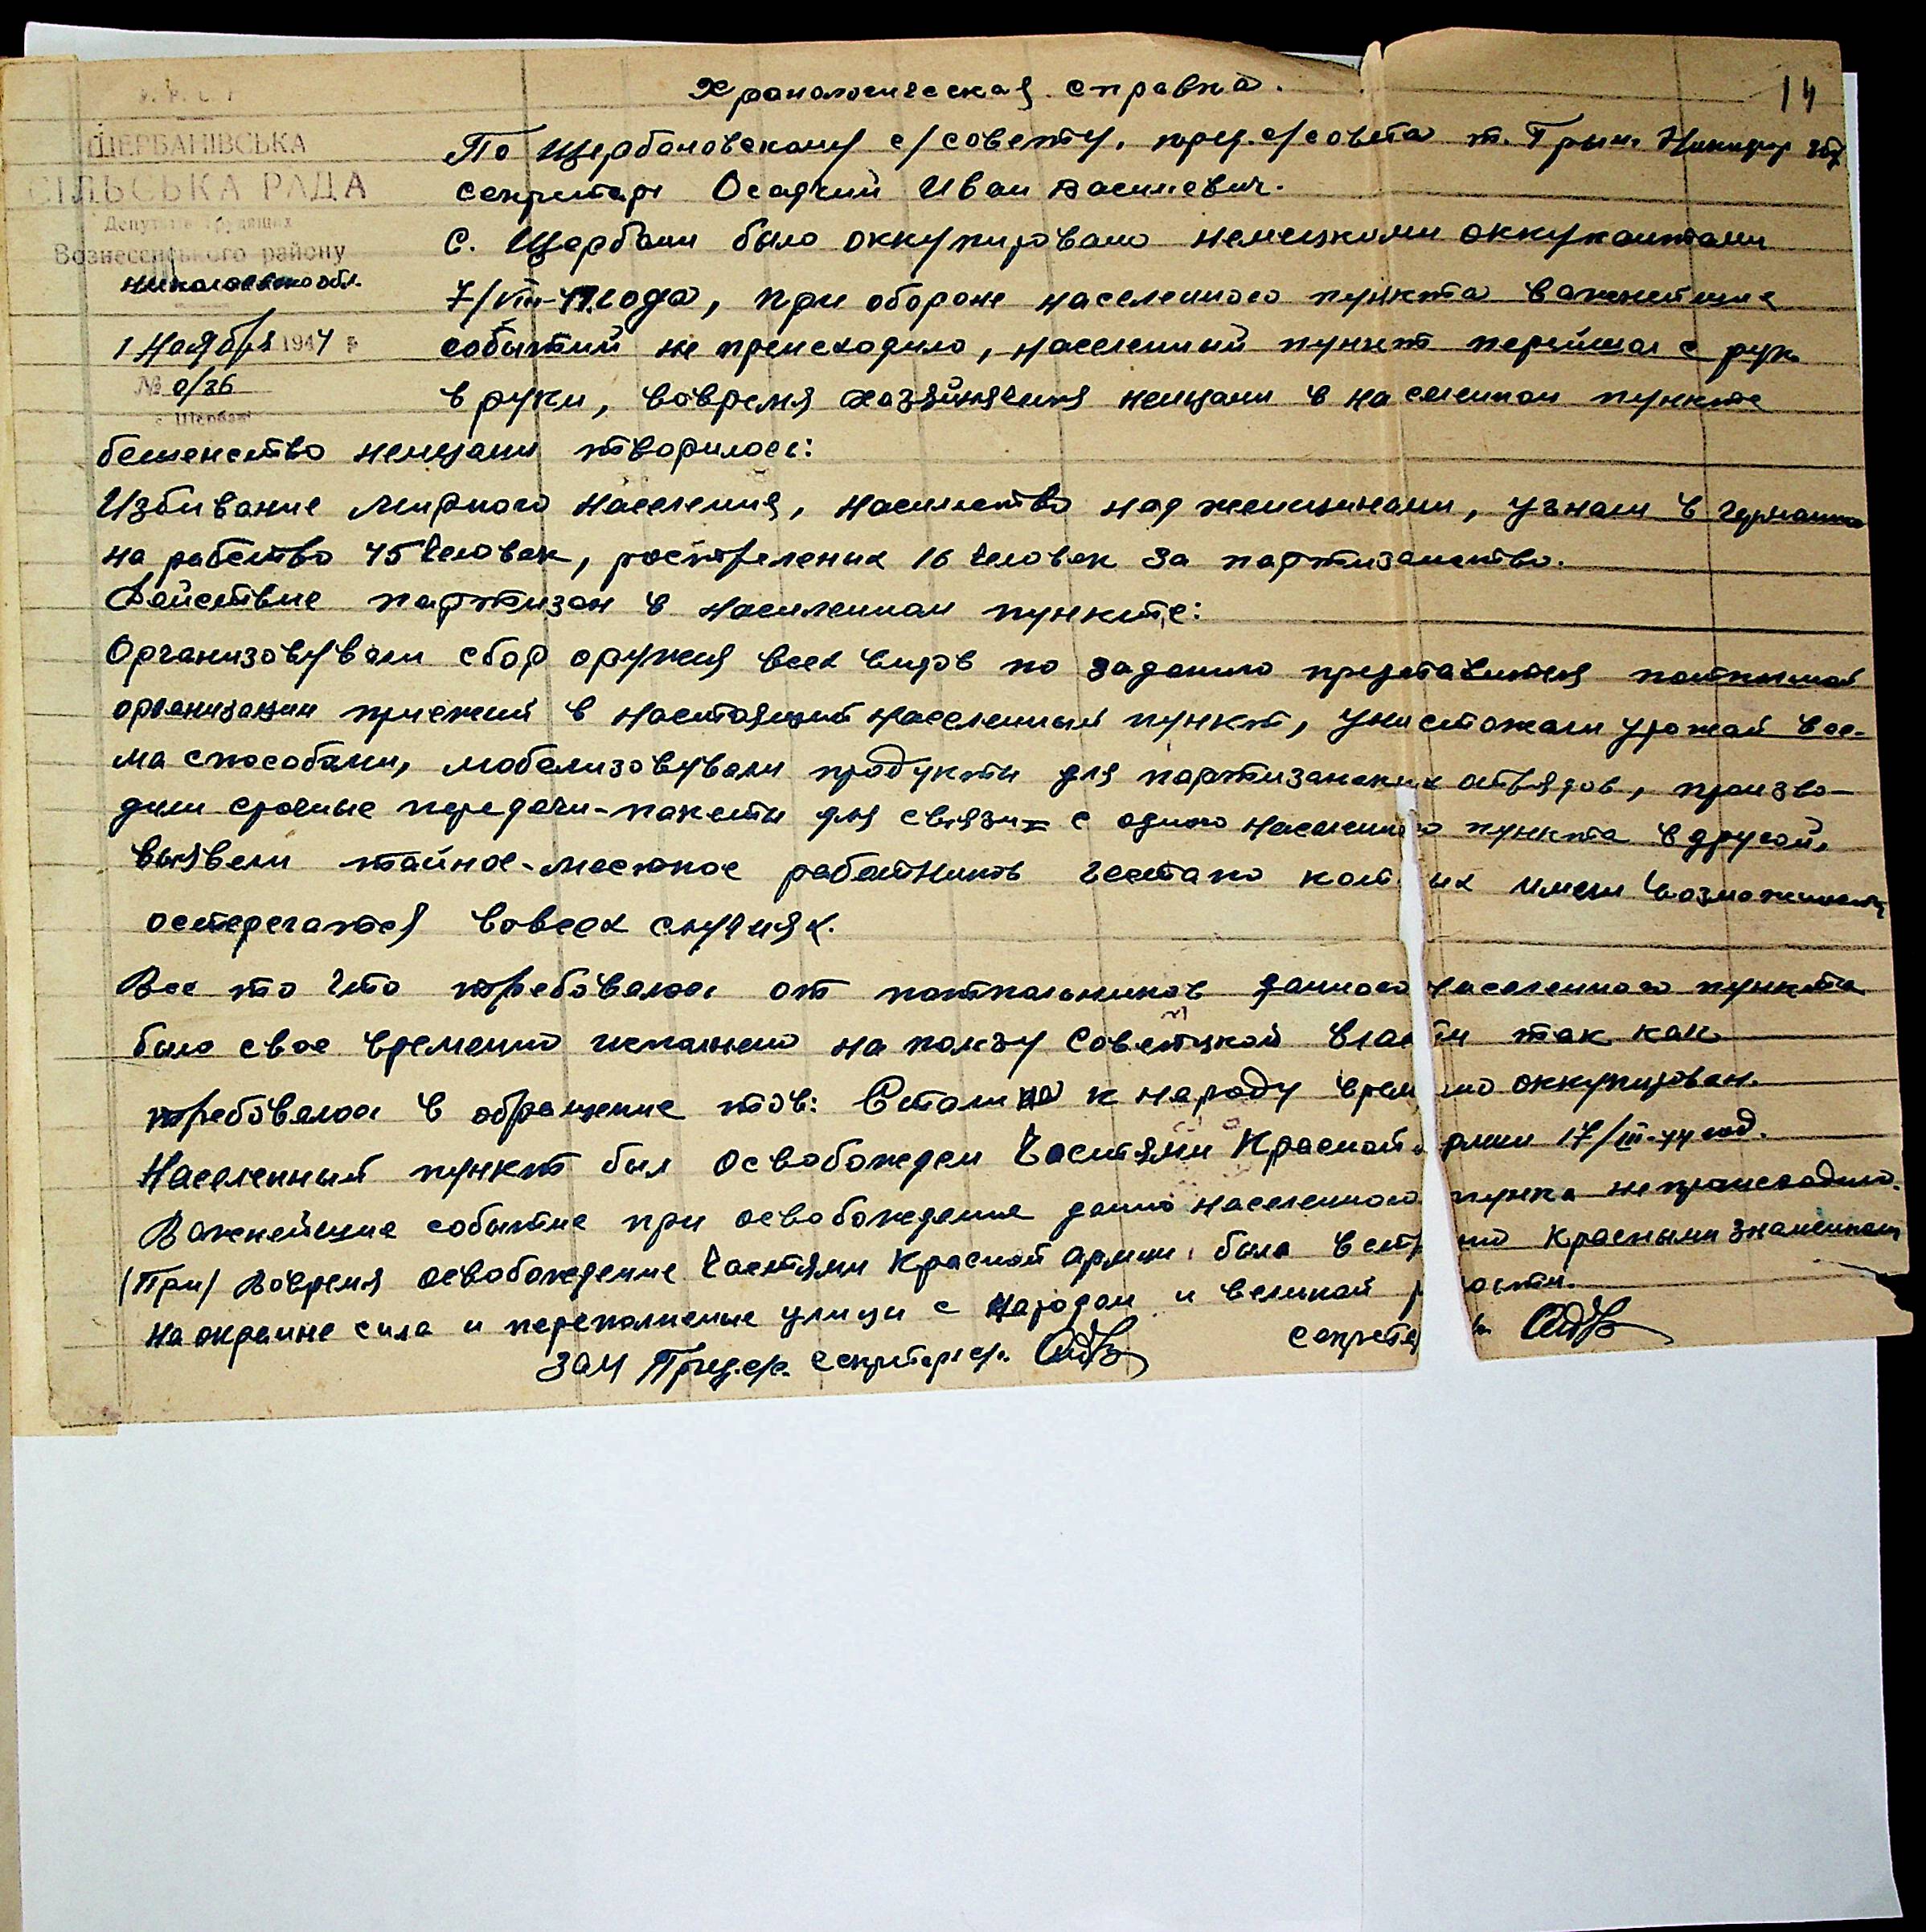 Хранологическая справка.
14
У. Р. С. Р
ЩЕРБАНІВСЬКА
СІЛЬСЬКА РАДА
Депутатів трудящих
Вознесенського району
Николаевско обл.
1 Ноября 1944 р
№ 0/36
с Щербані
По Щербановскому с/совету, пред. с/совета т. Грын Никифор
секретарь Осадчий Иван Василевич.
С. Щербани было оккупировано немецкоми оккупантами
7/VIII-41 года, при обороне населенного пункта важнейшие
событий не происходило, населенный пункт перейшол с рук
в руки, вовремя хазяйнявния немцами в населенном пункте
бешенство немцами творилось:
Избивание мирного населения, насильство над женщинами, угнали в германию
на рабство 45 человек, росстреленых 16 человек за партизанство.
Действие партизан в населенном пункте:
Организовували сбор оружия всех видов по заданию представителя потпольной
организации приежий в настоящий населенный пункт, уничтожали урожай все-
ма способами, мобелизовували продукты для партизанских отрядов, произво-
дили срочные передачи-пакеты для связи с одного населенного пункта в другой,
вызвели тайное-местное работников гестапо которых имели возможность
остерегатся вовсех случиях.
Все то что требовалось от потпольников данного населенного пункта
было свое временно исполнено на ползу Советцкой власти так как
требовалось в обращение тов: Сталина к народу временно оккупирован.
Населенный пункт был освобожден Частями Красной армии 17/III-44 год.
Важнейшие событие при освобождение данно населенного пунка не происходило.
(При) Вовремя освобождение Частями Красной армии была встречено красными знаменами
на окраине сила и переполненые улици с народом и великой радости.
ЗАМ Пред. с/с. секретарь с/с.
секретарь